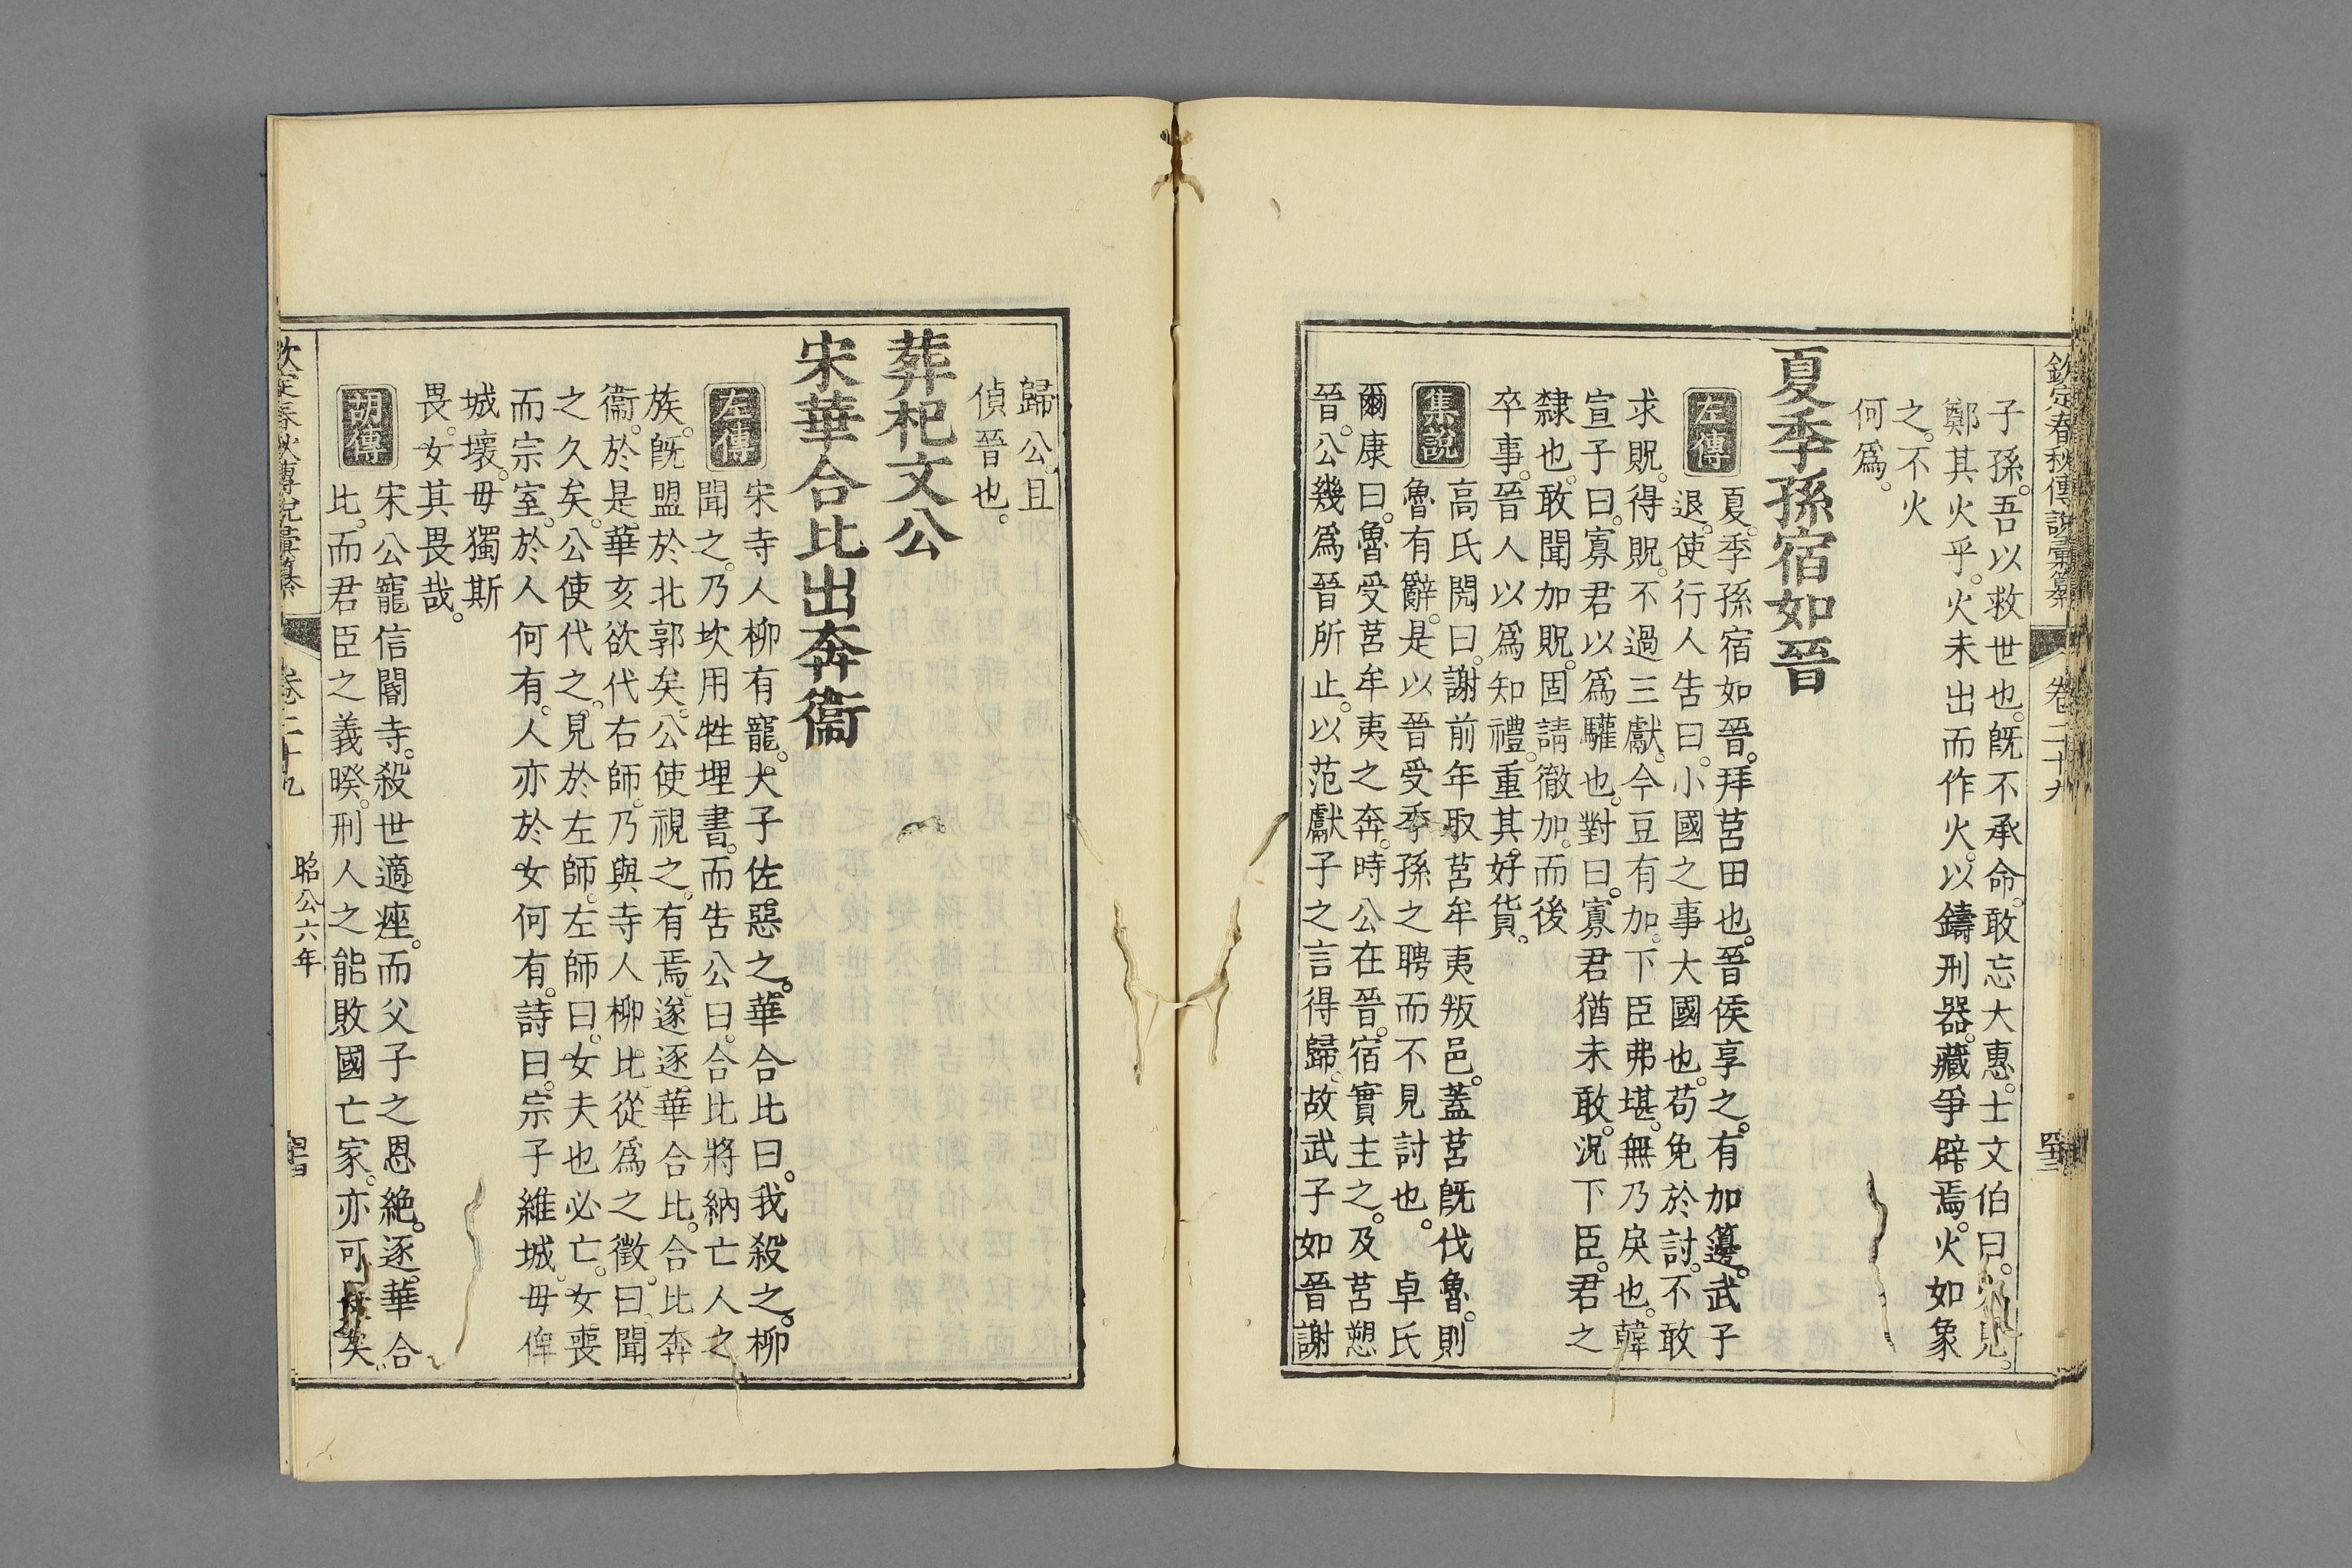 欽定春秋傳說彙纂 卷二十九
子孫。吾以救世也。旣不承命。敢忘大惠。士文伯曰。火見。
鄭其火乎。火未出而作火。以鑄刑器。藏爭辟焉。火如象
之。不火
何爲。
夏季孫宿如晉
左傳
夏。季孫宿如晉。拜莒田也。晉侯享之。有加籩。武子
退。使行人告曰。小國之事大國也。苟免於討。不敢
求貺。得貺。不過三獻。今豆有加。下臣弗堪。無乃戾也。韓
宣子曰。寡君以爲驩也。對曰。寡君猶未敢。況下臣。君之
隸也。敢聞加貺。固請徹加。而後
卒事。晉人以爲知禮。重其好貨。
集說
高氏閌曰。謝前年取莒牟夷叛邑。蓋莒旣伐魯。則
魯有辭。是以晉受季孫之聘而不見討也。 卓氏
爾康曰。魯受莒牟夷之奔。時公在晉。宿實主之。及莒愬
晉。公幾爲晉所止。以范獻子之言得歸。故武子如晉謝
歸公。且
偵晉也。
葬杞文公
宋華合比出奔衞
左傳
宋寺人柳有寵。大子佐惡之。華合比曰。我殺之。柳
聞之。乃坎用牲埋書。而告公曰。合比將納亡人之
族。旣盟於北郭矣。公使視之。有焉。遂逐華合比。合比奔
衞。於是華亥欲代右師。乃與寺人柳比。從爲之徵。曰。聞
之久矣。公使代之。見於左師。左師曰。女夫也必亡。女喪
而宗室。於人何有。人亦於女何有。詩曰。宗子維城。毋俾
城壞。毋獨斯
畏。女其畏哉。
胡傳
宋公寵信閽寺。殺世適痤。而父子之恩絶。逐華合
比。而君臣之義暌。刑人之能敗國亡家。亦可畏矣。
欽定春秋傳說彙纂 卷二十九 昭公六年